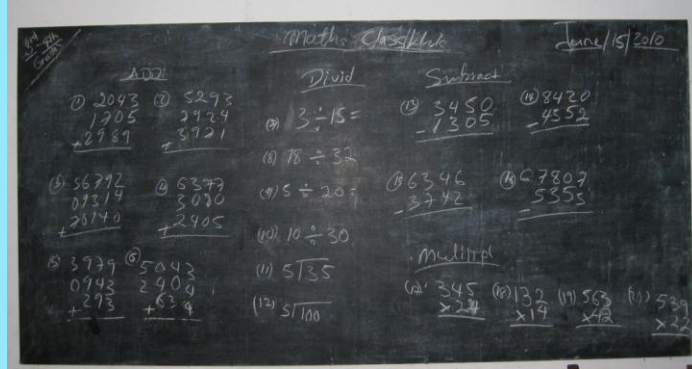 3rd - 4th
Grades
Maths Class/Klub
June/15/2010
ADD
(1) 2043
1205
+2989
(2) 5293
2924
+3921
(3) 56792
09314
+20140
(4) 6377
3080
+2405
(5) 3979
0943
+293
(6) 5043
2404
+634
Divid
3÷15=
(8) 18÷32
(9) 5÷20=
(10) 10÷30
(11) 5√35
(12) 5√100
Subtract
(13) 3450
-1305
(14) 8420
-4552
(15) 6346
-3742
(16) 67807
-5353
Multip
(17) 345
×24
(18) 132
×14
(19) 563
×42
(20) 539
×22